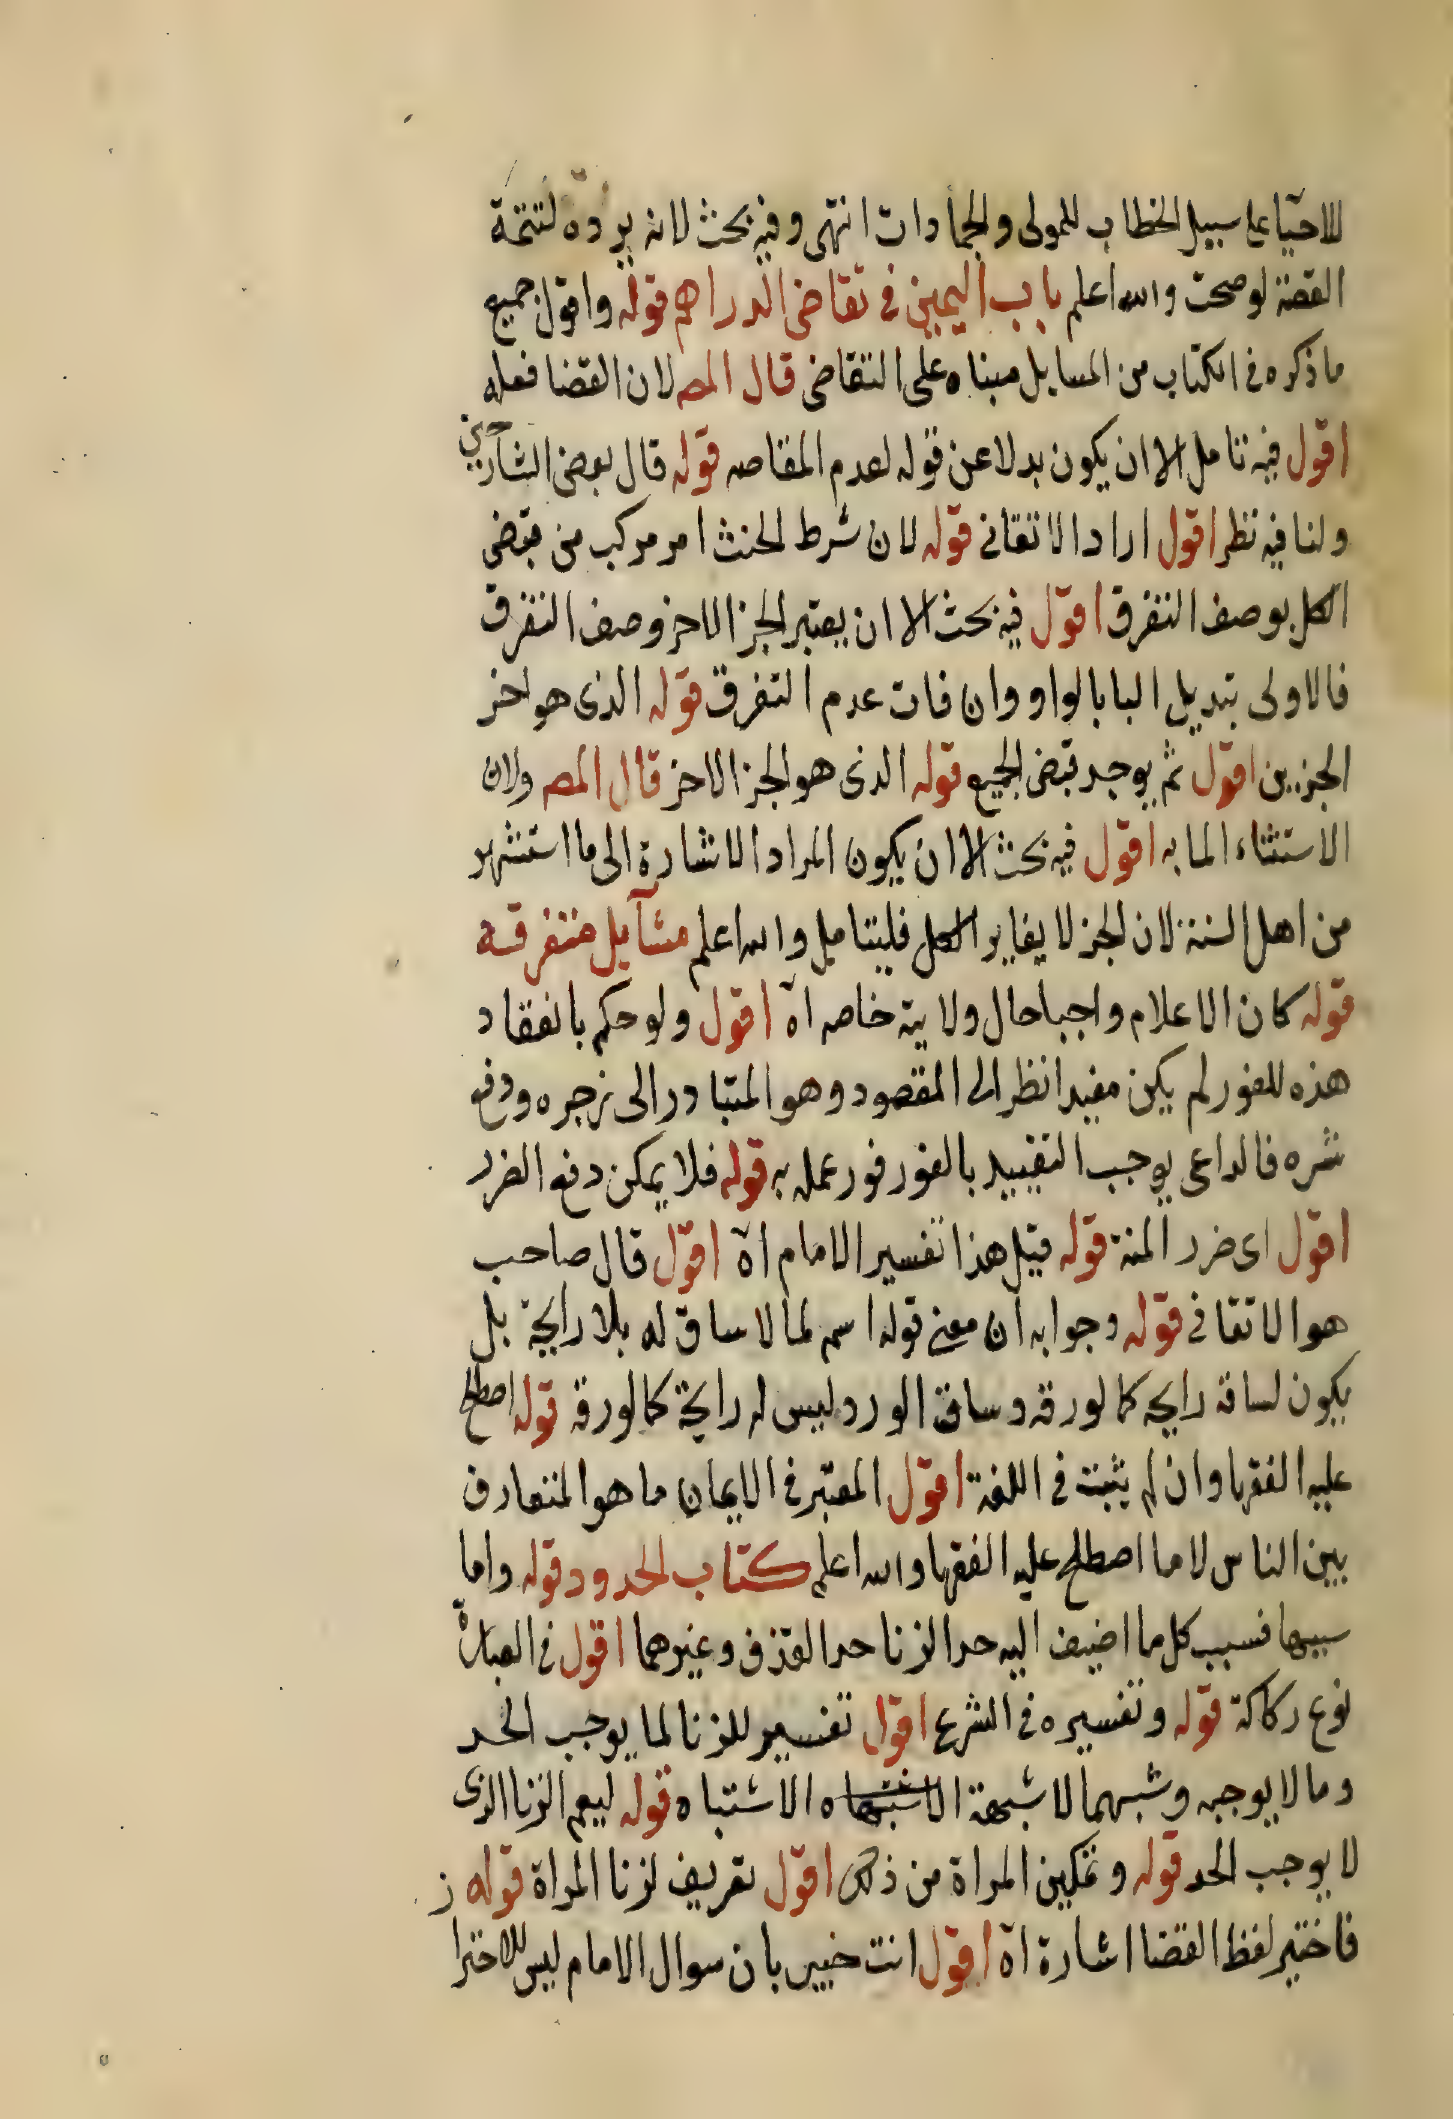 للاحيا على سبيل الخطاب للمولى والجمادات انتهى وفيه بحث لانه يرده لتتمة
القصة لو صحت والله اعلم باب اليمين في تقاضى الدراهم قوله واقول جميع
ما ذكره في الكتاب من المسايل مبناه على التقاضى قال المصـ لان القضا فعله
اقول فيه تامل الا ان يكون بدلا عن قوله لعدم المقاصه قوله قال بعض الشارحين
ولنا فيه نظر اقول اراد الاتقانى قوله لان شرط الحنث امر مركب من قبض
الكل بوصف التفرق اقول فيه بحث الا ان يعتبر الجز الاخر وصف التفرق
فالاولى تبديل البا بالواو وان فات عدم التفرق قوله الذى هو اخر
الجزين اقول ثم يوجد قبض الجميع قوله الذى هو الجز الاخر قال المصـ ولان
الاستثناء المابه اقول فيه بحث الا ان يكون المراد الاشارة الى ما استشهر
من اهل السنة لان الجز لا يغاير الكل فليتامل والله اعلم مسآيل متفرقة
قوله كان الاعلام واجبا حال ولايته خاصه اه اقول ولو حكم بانعقاد
هذه للفور لم يكن مفيدا نظرا الى المقصود وهو المتبادر الى زجره ودفع
شره فالداعى يوجب التقييد بالفور فور عمله به قوله فلا يمكن دفع الضرر
اقول اى ضرر المنة قوله قيل هذا تفسير الامام اه اقول قال صاحب
هو الاتقانى قوله وجوابه ان معنى قوله اسم لما لا ساق له بلا رايحة بل
يكون لساقه رايحه كما لورقه وساق الورد ليس له رايحة كما لورقه قوله اصطلح
عليه الفقها وان لم يثبت في اللغة اقول المعتبر في الايمان ما هو المتعارف
بين الناس لا ما اصطلح عليه الفقها والله اعلم كتاب الحدود قوله واما
سببها فسبب كل ما اضيف اليه حد الزنا حد القذف وغيرهما اقول في العبارة
نوع ركاكة قوله وتفسيره في الشرع اقول تفسير للزنا لما يوجب الحد
وما لا يوجبه وشبهما لا شبهة الاشتباه الاشتباه قوله ليعم الزنا الذى
لا يوجب الحد قوله وتمكين المراة من ذلك اقول تعريف لزنا المراة قوله ز
فاختير لفظ القضا اشارة اه اقول انت خبير بان سوال الامام ليس للاحترا